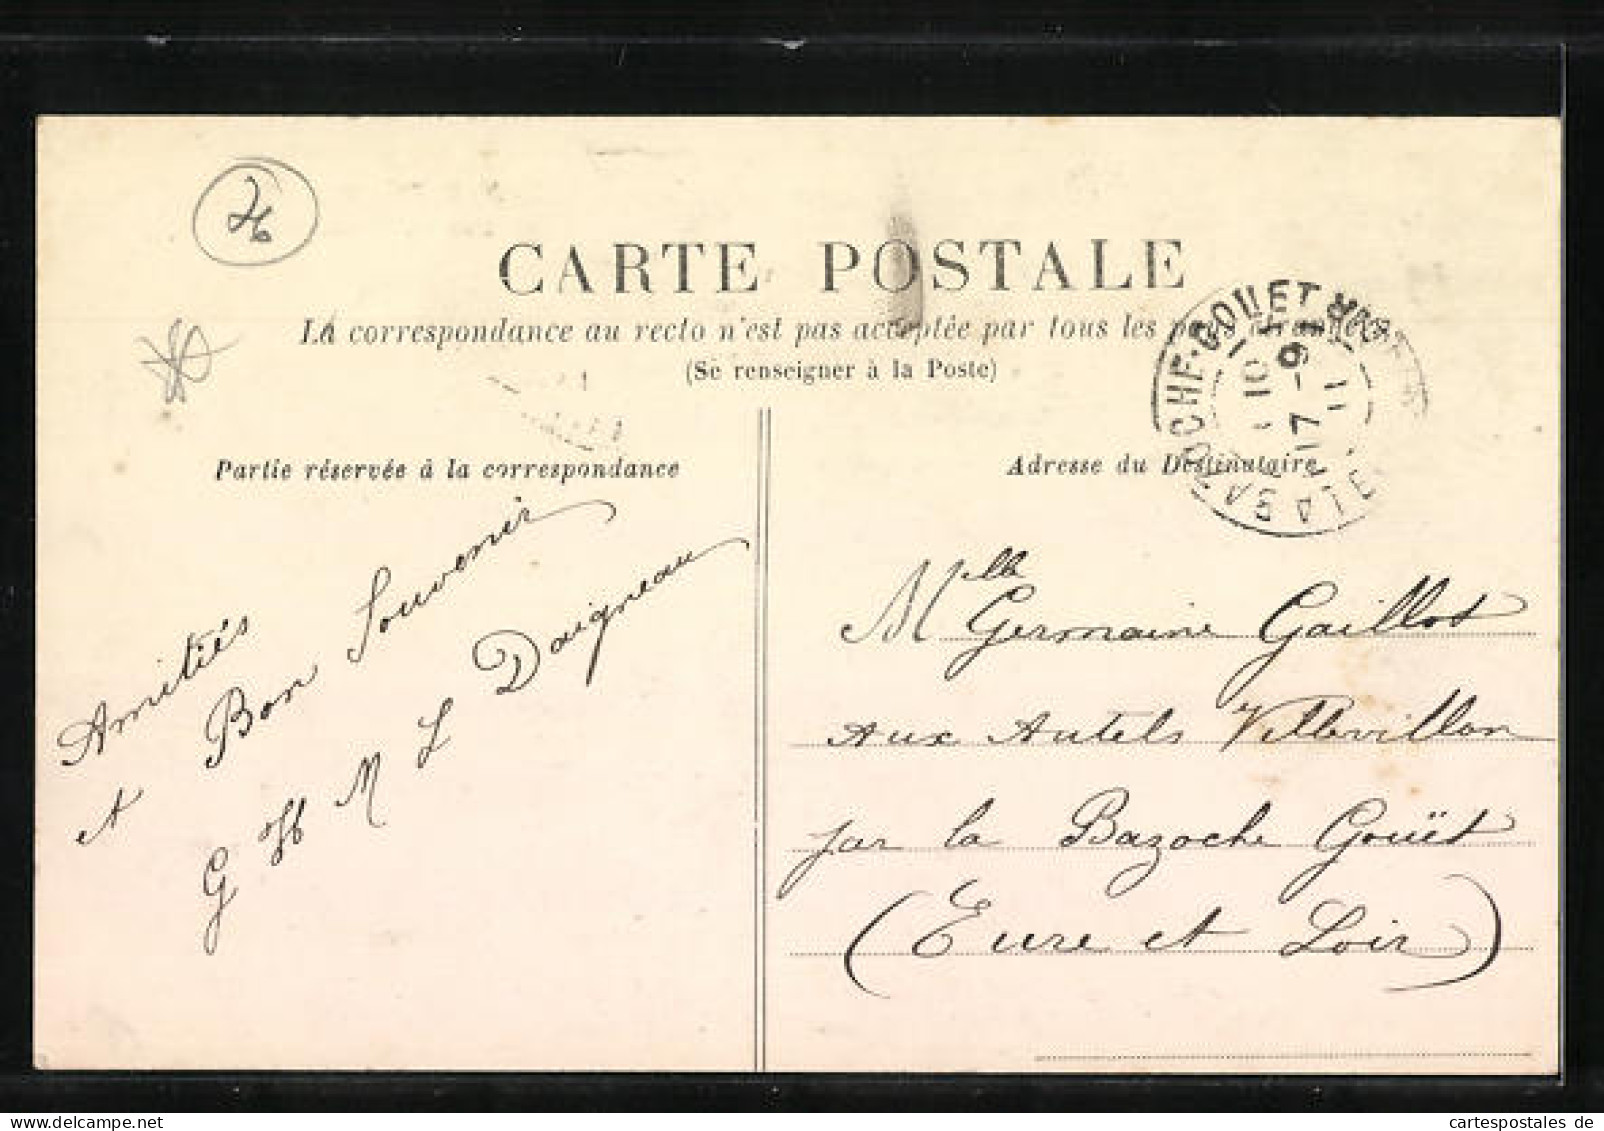 26
CARTE POSTALE
La correspondance au recto n'est pas acceptée par tous les pays étrangers
(Se renseigner à la Poste)
LA BAZOCHE-GOUET
10
17 -9
11
Partie réservée à la correspondance
Amitiés
et Bon Souvenir
G H M L Daigneau
Adresse du Destinataire
Mlle Germaine Gaillot
Aux Autels Villevillon
par la Bazoche Gouët
(Eure et Loir)
cartespostales de